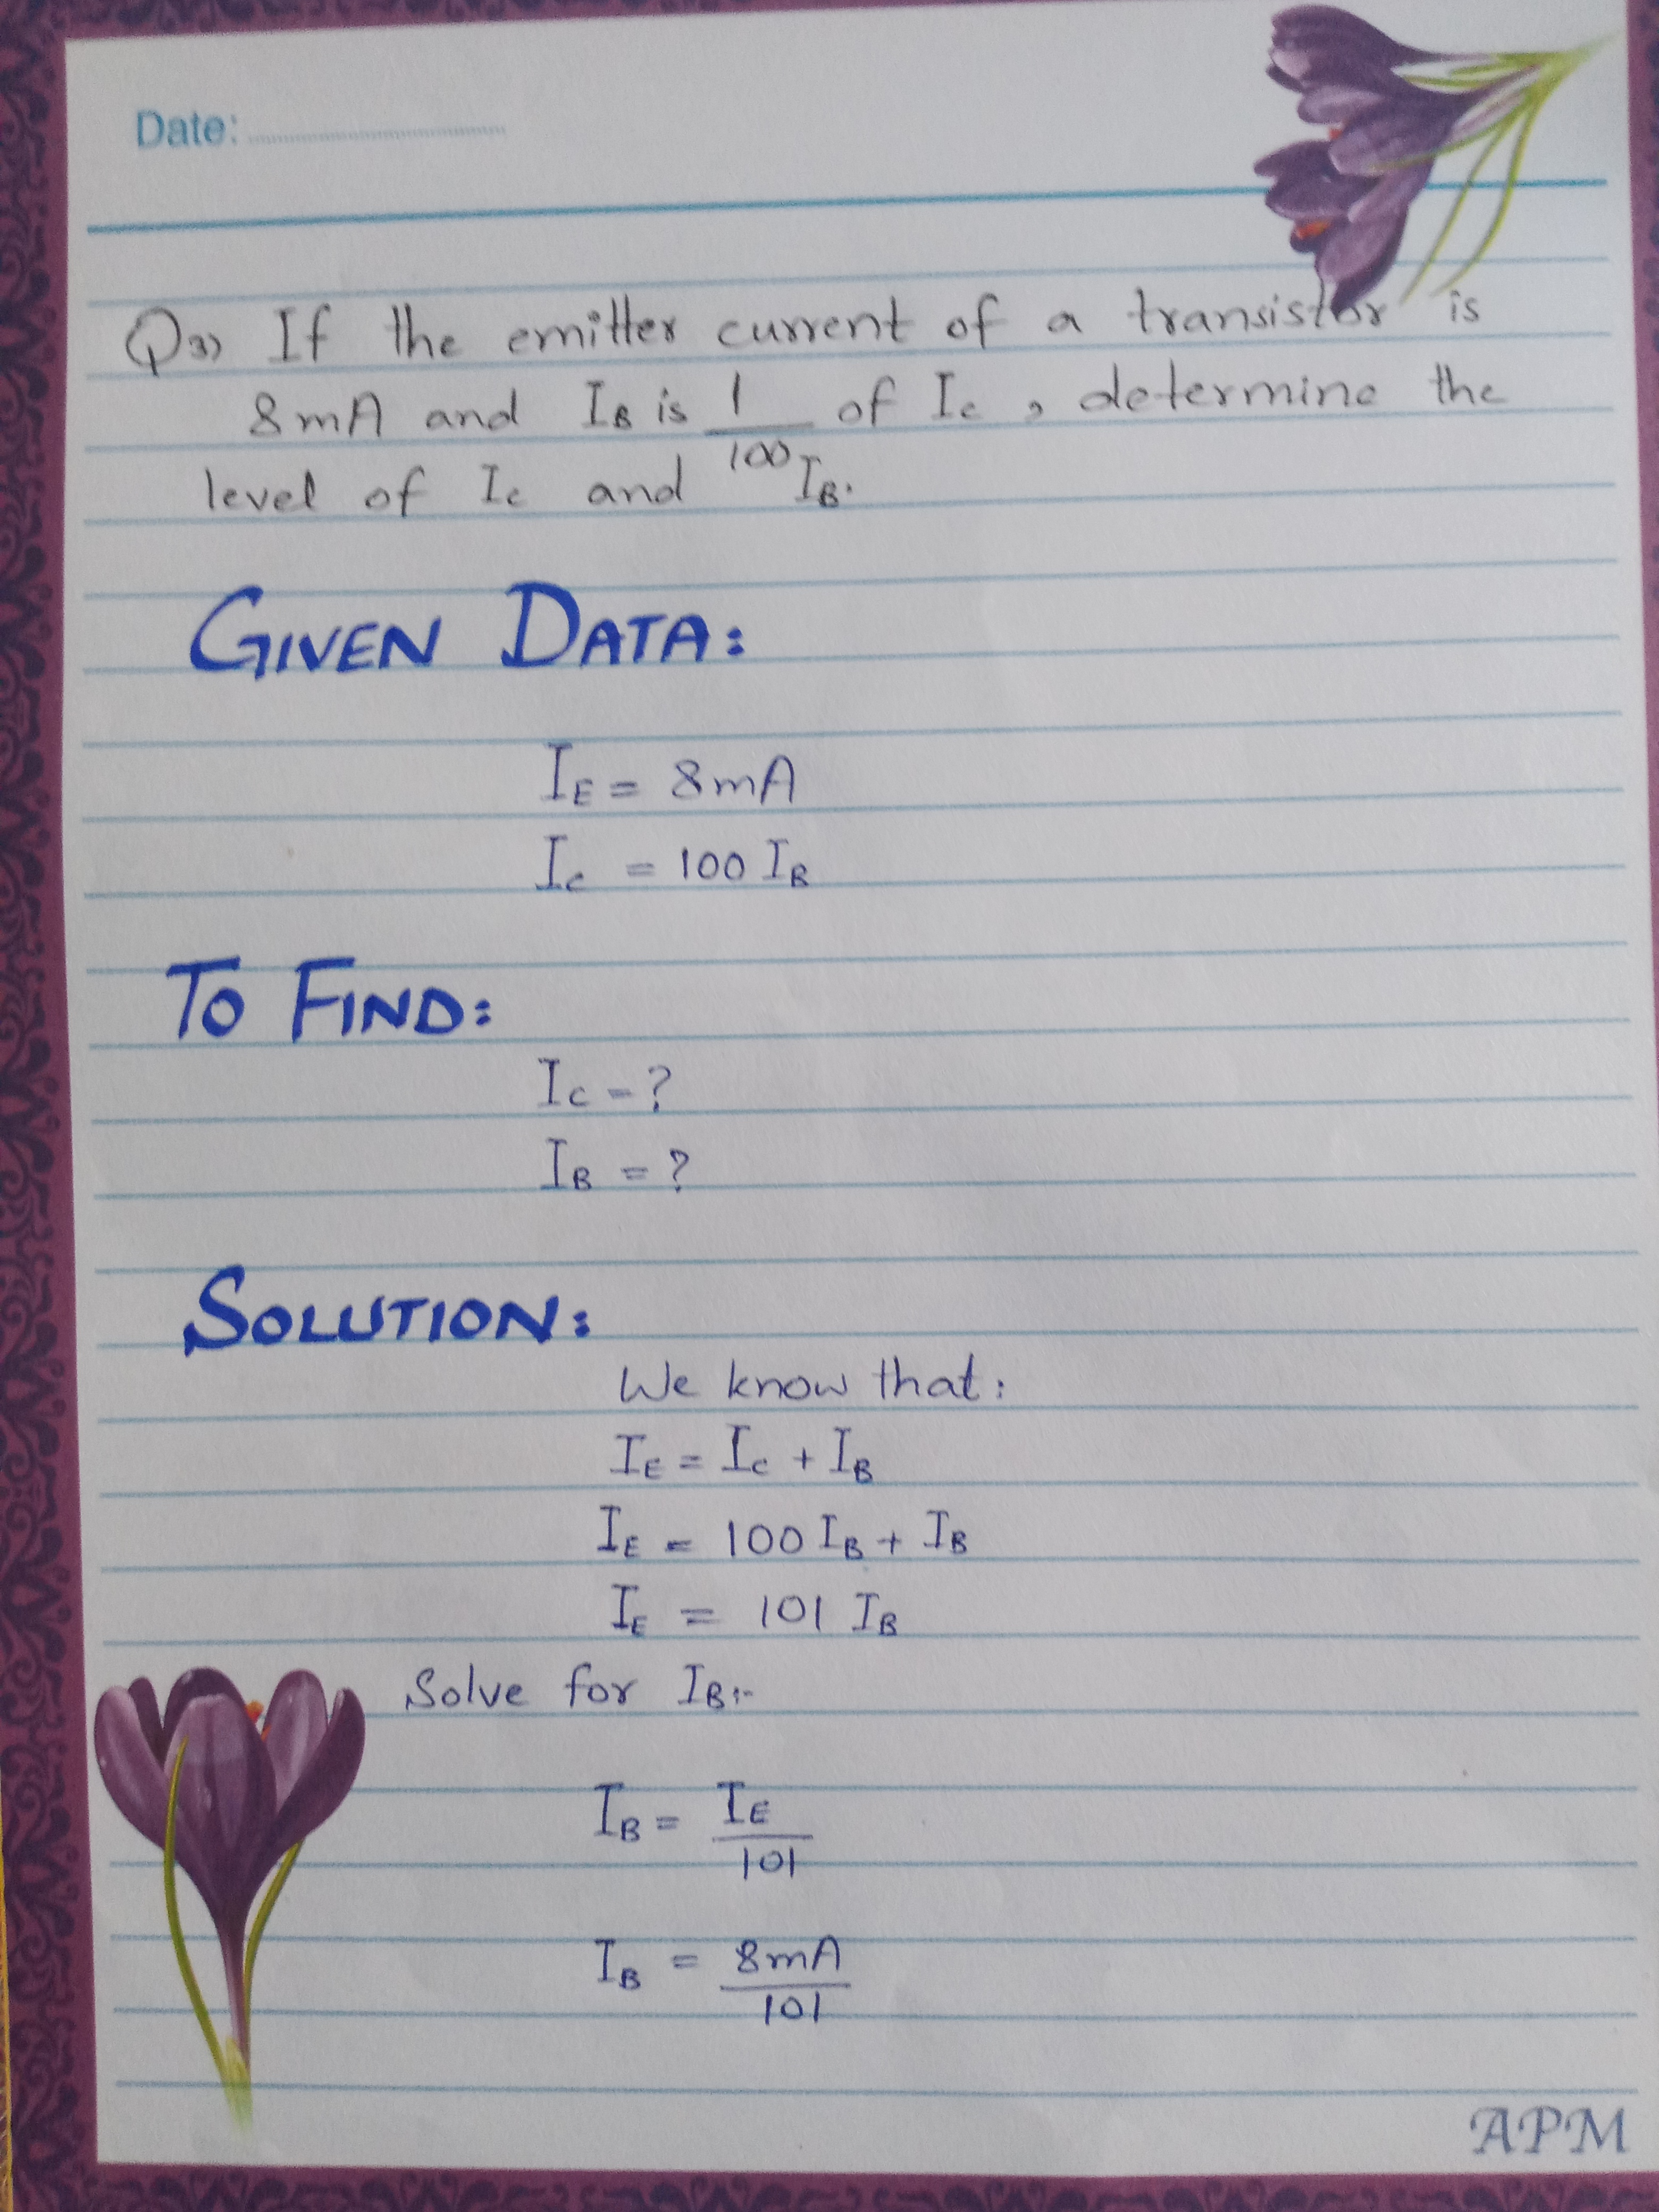 Date:
Q3) If the emitter current of a transistor is
8mA and IB is 1/100 of Ic, determine the
level of Ic and IB.
GIVEN DATA:
IE = 8mA
Ic = 100 IB
TO FIND:
Ic - ?
IB = ?
SOLUTION:
We know that:
IE = Ic + IB
IE = 100 IB + IB
IE = 101 IB
Solve for IB:-
IB = IE/101
IB = 8mA/101
APM